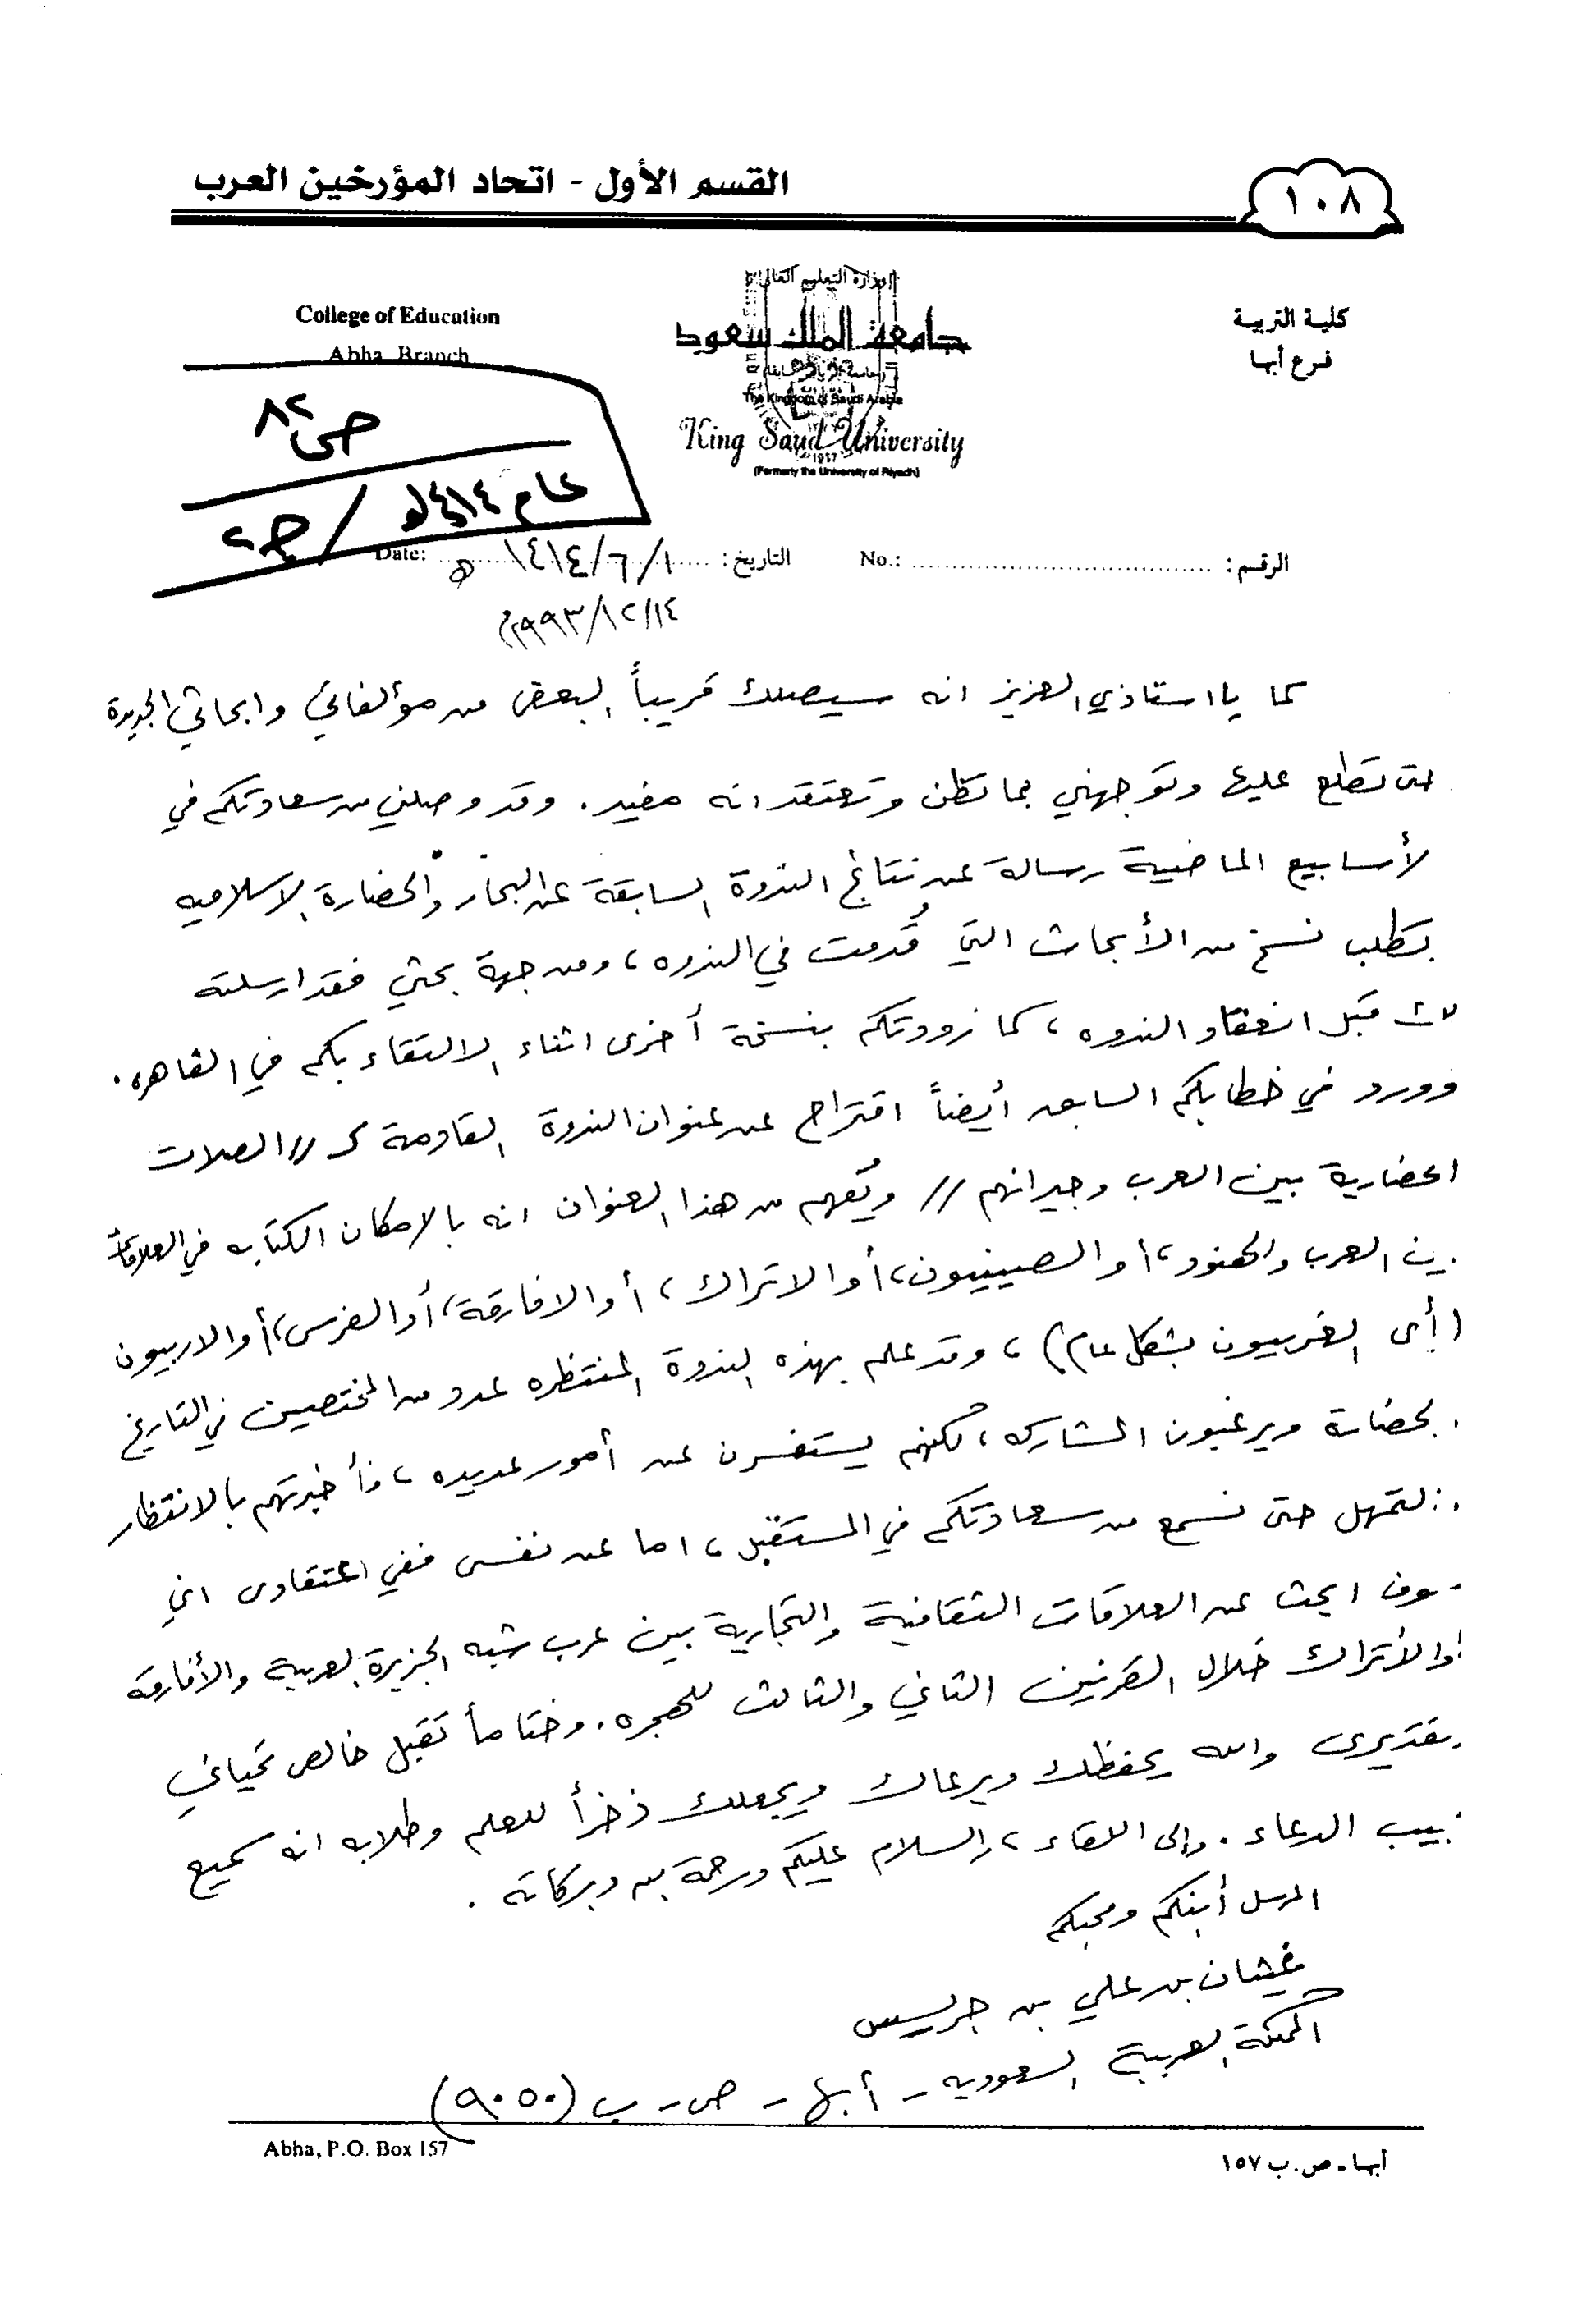 ١٠٨
القسم الأول - اتحاد المؤرخين العرب
كلية التربية
فرع أبها
وزارة التعليم العالي
جامعة الملك سعود
The Kingdom of Saudi Arabia
King Saud University
1957
(Formerly the University of Riyadh)
College of Education
Abha Branch
ص ٨٢
عام ١٤١٤هـ / ج٢
الرقم: No.:
التاريخ: ١٤١٤/٦/١ هـ Date:
١٩٩٣/١٢/١٤م
كما يا استاذي العزيز انه سيصلك قريباً البعض من مؤلفاتي وابحاثي الجديدة
حتى تطلع عليها وتوجهني بما تظن وتعتقد انه مفيد. وقد وصلني من سعادتكم في
لأسابيع الماضية رسالة عن نتائج الندوة السابقة عن البحار والحضارة الاسلاميه
بطلب نسخ من الأبحاث التي قُدمت في الندوه، ومن جهة بحثي فقد ارسلته
لك قبل انعقاد الندوه، كما زودتكم بنسخة أخرى اثناء الالتقاء بكم في القاهره.
وورد في خطابكم السابق أيضاً اقتراح عن عنوان الندوة القادمة كـ // الصلات
الحضارية بين العرب وجيرانهم // ويُفهم من هذا العنوان انه بالإمكان الكتابه في العلاقات
بين العرب والهنود، أو الصينيون، أو الاتراك، أو الافارقة، أو الفرس، أو الاربيون
(أي الغربيون بشكل عام)، وقد علم بهذه الندوة المنتظره عدد من المختصين في التاريخ
لحضارة ويرغبون المشاركه، لكنهم يستفسرون عن أمور عديده، فأخبرتهم بالانتظار
التمهل حتى نسمع من سعادتكم في المستقبل، اما عن نفسي ففي اعتقادى اني
سوف ابحث عن العلاقات الثقافية والتجارية بين عرب شبه الجزيرة العربية والأفارقه
أو الأتراك خلال القرنين الثاني والثالث للهجره. وختاماً تقبل خالص تحياتي
وتقديرى والله يحفظك ويرعاك ويجعلك ذخراً للعلم وطلابه انه سميع
مجيب الدعاء. وإلى اللقاء، والسلام عليكم ورحمة الله وبركاته.
المرسل أبنكم ومحبكم
غيثان بن علي بن جريس
المملكة العربية السعوديه - أبها - ص - ب (٩٠٥٠)
أبها - ص. ب ١٥٧
Abha, P.O. Box 157